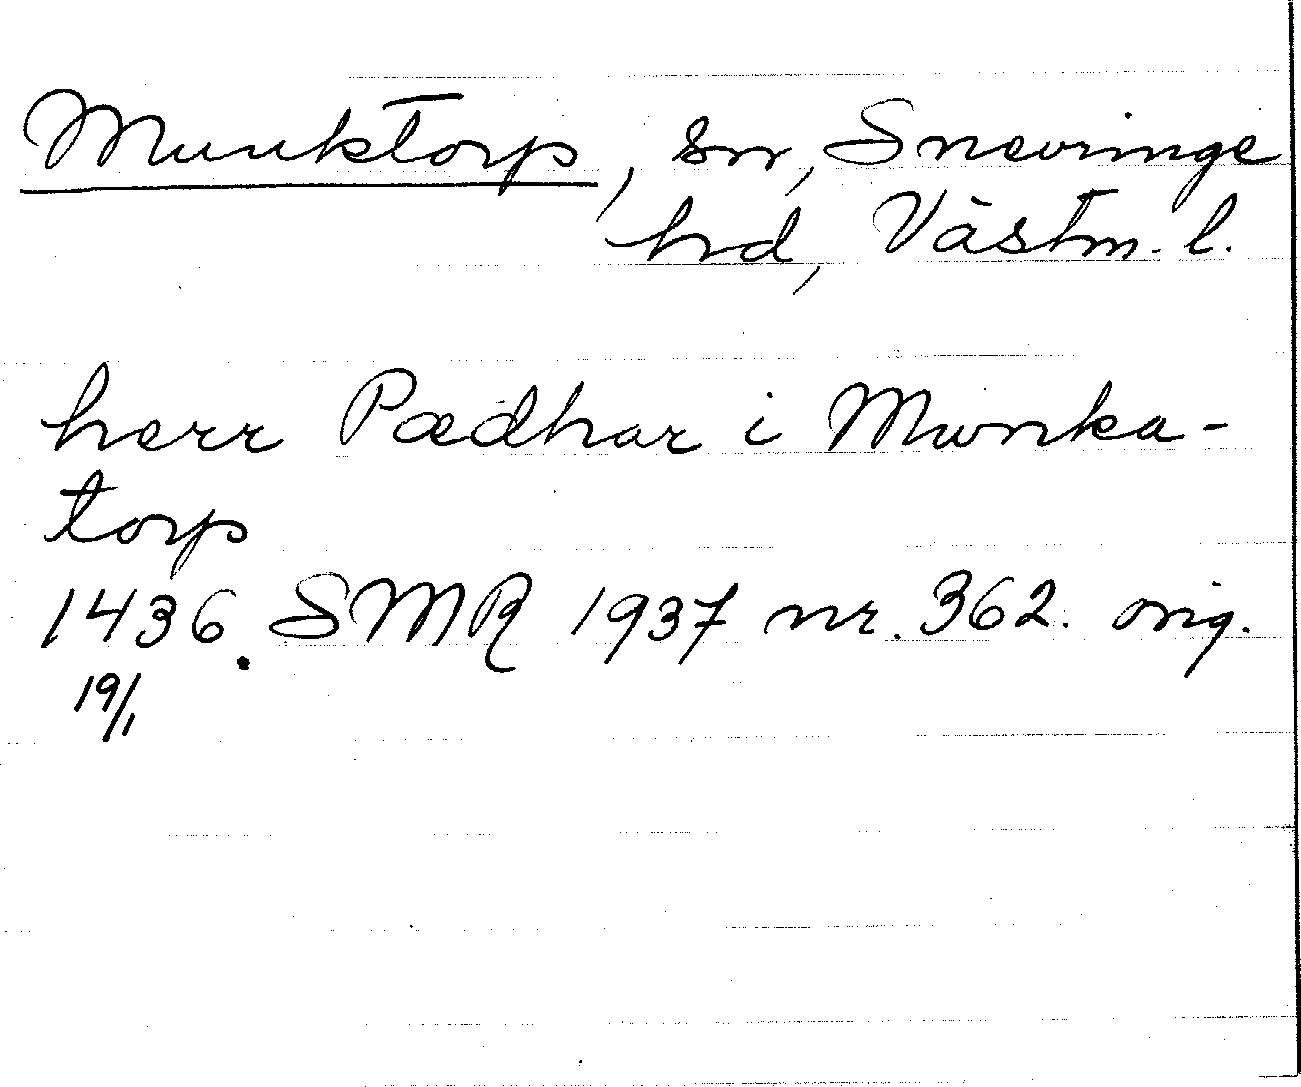 Munktorp, sn, Snevringe
hrd, Västm. l.
herr Pædhar i Munka-
torp
1436. SMR 1937 nr. 362. orig.
19/1